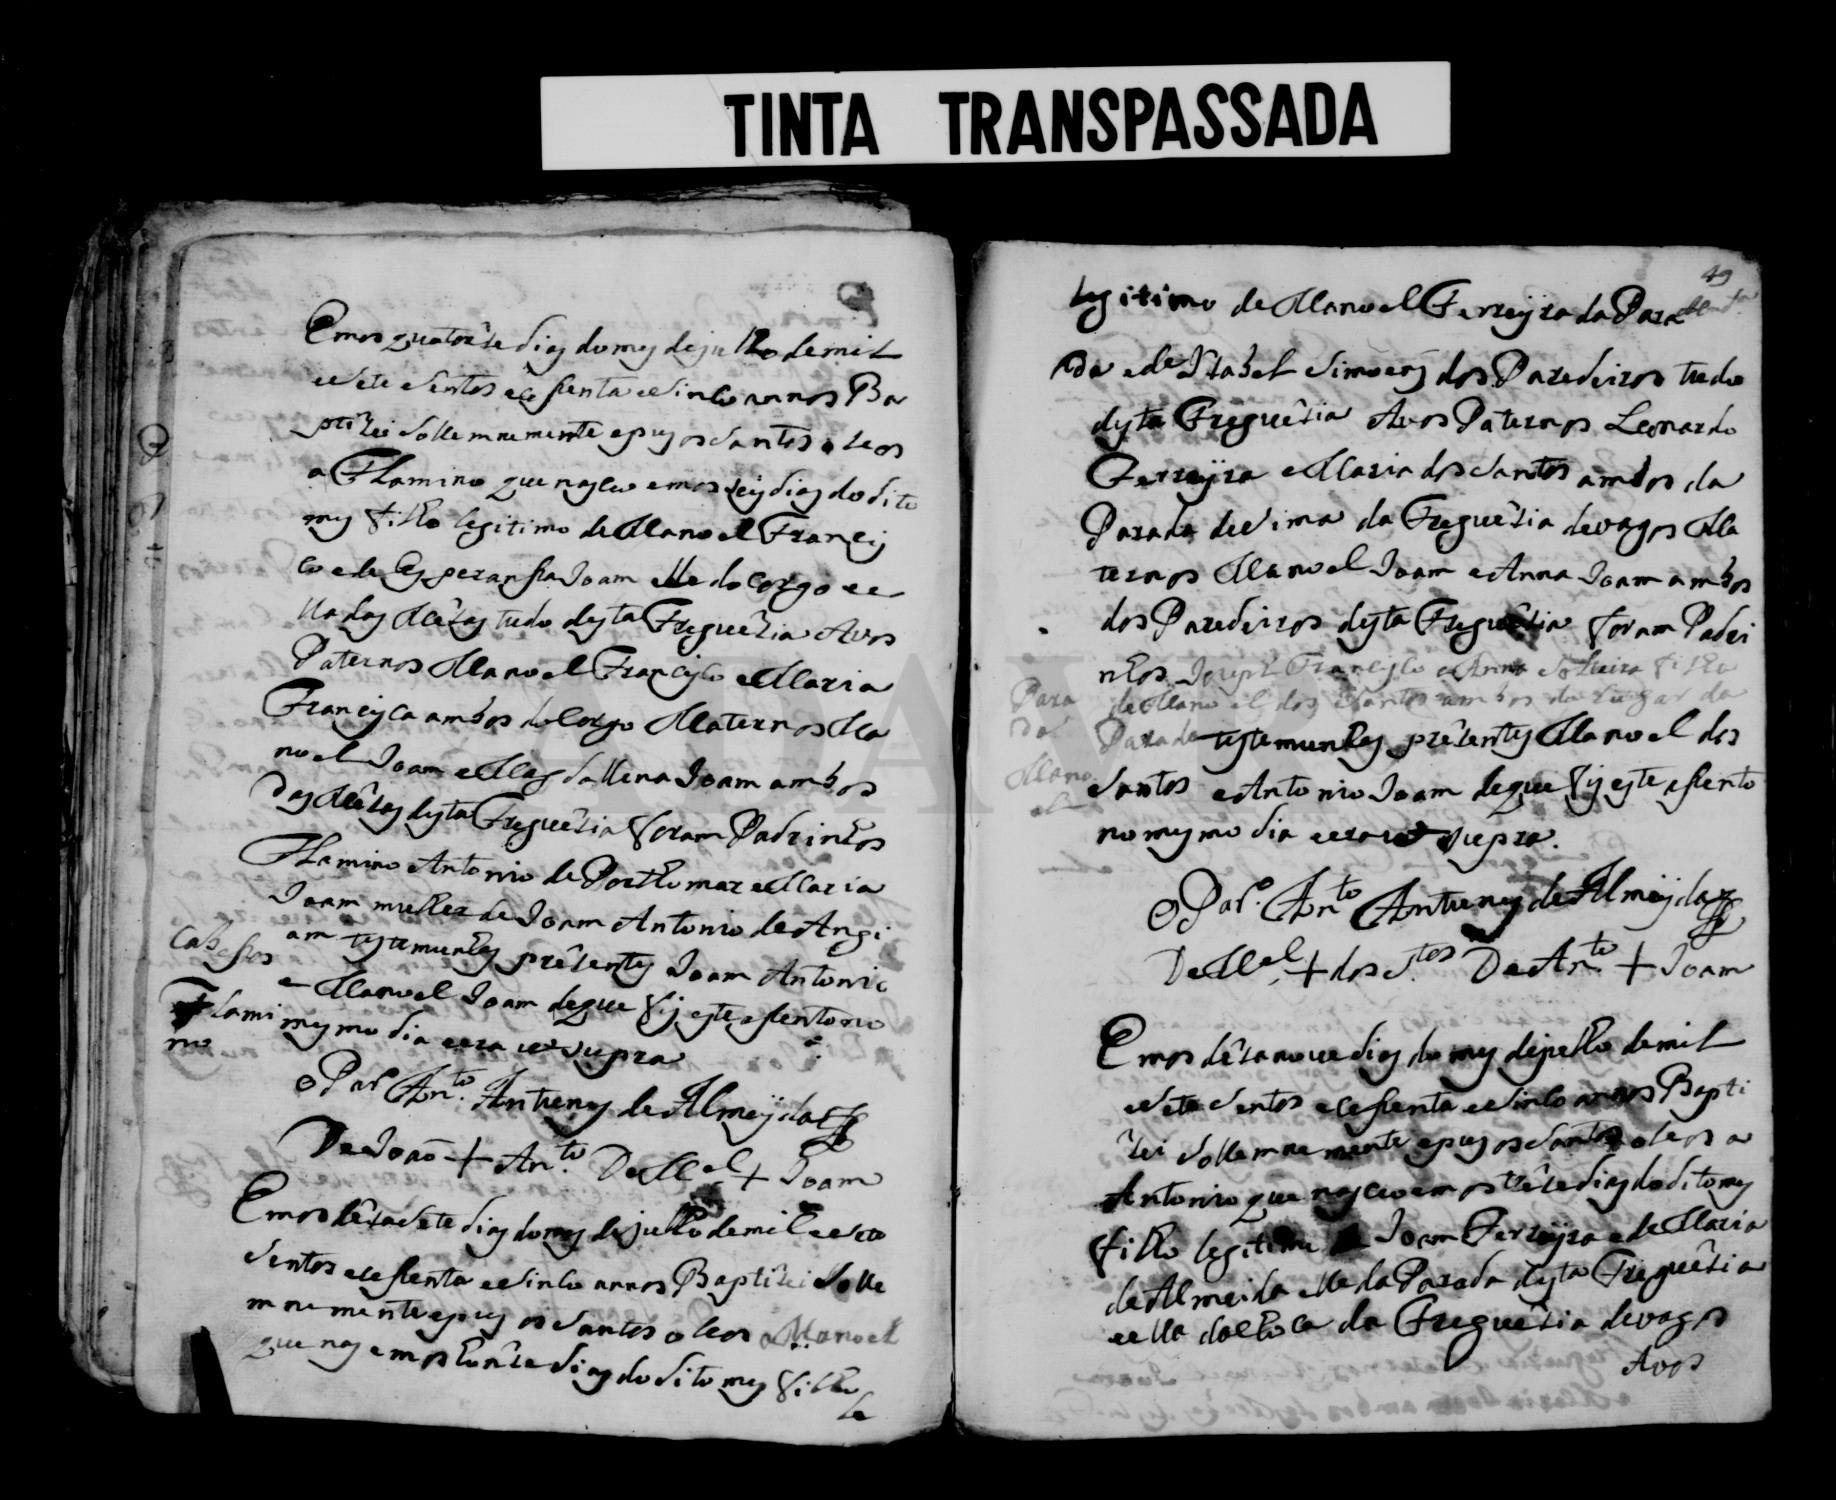 TINTA TRANSPASSADA
Emos quatorze dias do mes de julho de mil
e sete sentos e cesenta e sinco annos Ba
ptizei sollemnemente e pus os santos oleos
a Flamino que nasceo em os seis dias do dito
mes filho legitimo de Manoel Francis
co e de Esperansa Joam elle do Corgo e e
lla das Mezas tudo desta Freguezia Avos
Paternos Manoel Francisco e Maria
Francisca ambos do Corgo Maternos Ma
noel Joam e Magdallena Joam ambos
das Mezas desta Freguezia foram Padrinhos
Flamino Antonio de Porthomar e Maria
Joam mulher de Joam Antonio de Angi
am testemunhas prezentes Joam Antonio
e Manoel Joam de que fis este asento no
mesmo dia e era ut supra
Flami
no
O Par. Anto. Antunes de Almeyda
De Joaõ + Anto. De Mel + Joam
Emos dezasete dias do mes de julho de mil e sete
sentos e cesenta e sinco annos Baptizei solle
mnemente e pus os santos oleos a Manoel
que nas emos honze dias do dito mes filho
le
49
legitimo de Manoel Ferreyra da Para
da e de Izabel Simoens dos Paredeiros tudo
desta Freguezia Avos Paternos Leonardo
Ferreyra e Maria dos Santos ambos da
Parada de Sima da Freguezia de vagos Ma
ternos Manoel Joam e Anna Joam ambos
dos Paredeiros desta Freguezia foram Padri
nhos Joseph Francisco e Anna solteira filha
de Manoel dos Santos ambos do lugar da
Parada testemunhas prezentes Manoel dos
Santos e Antonio Joam de que fis este asento
no mesmo dia e era ut supra.
Para
da
Mano
el
O Par. Anto. Antunes de Almeyda
De Mel + dos Stos De Anto. + Joam
Emos dezanove dias do mes de julho de mil
e sete sentos e cesenta e sinco annos Bapti
zei sollemnemente e pus os santos oleos a
Antonio que nasceo em os treze dias do dito mes
filho legitimo de Joam Ferreyra e de Maria
de Almeida elle da Parada desta Freguezia
e ella da da Freguezia de vagos
Avos